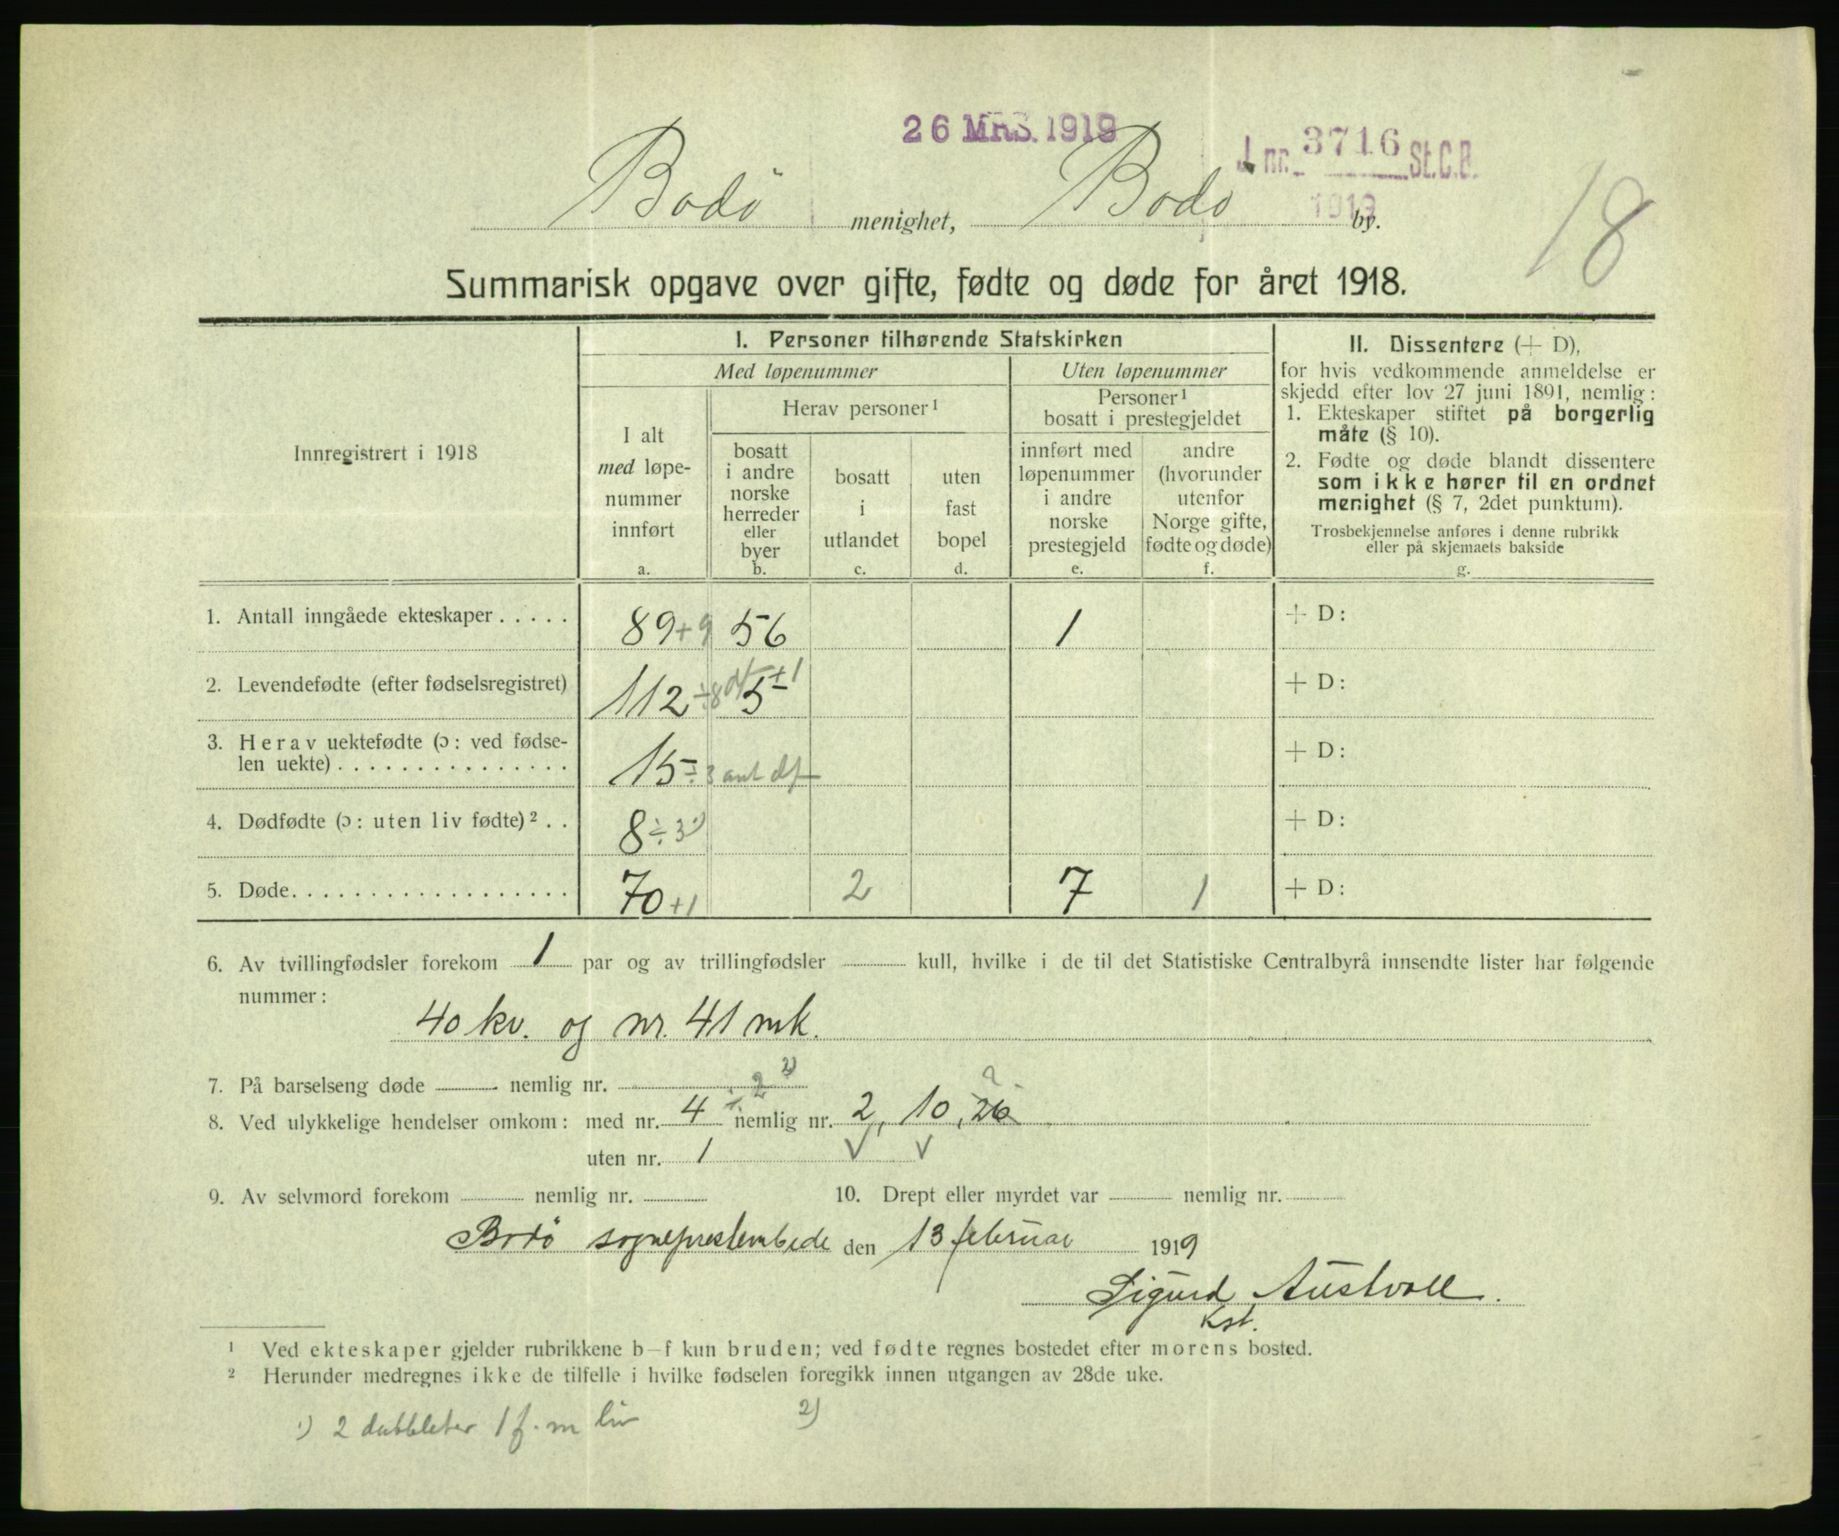 26 MRS. 1919
J. nr. 3716 St.C.B.
1919
18
Bodø menighet, Bodø by.
Summarisk opgave over gifte, fødte og døde for året 1918.
Innregistrert i 1918
I. Personer tilhørende Statskirken
Med løpenummer
Uten løpenummer
I alt
med løpe-
nummer
innført
a.
Herav personer ¹
bosatt
i andre
norske
herreder
eller
byer
b.
bosatt
i
utlandet
c.
uten
fast
bopel
d.
Personer ¹
bosatt i prestegjeldet
innført med
løpenummer
i andre
norske
prestegjeld
e.
andre
(hvorunder
utenfor
Norge gifte,
fødte og døde)
f.
II. Dissentere (+ D),
for hvis vedkommende anmeldelse er
skjedd efter lov 27 juni 1891, nemlig:
1. Ekteskaper stiftet på borgerlig
måte (§ 10).
2. Fødte og døde blandt dissentere
som ikke hører til en ordnet
menighet (§ 7, 2det punktum).
Trosbekjennelse anføres i denne rubrikk
eller på skjemaets bakside
g.
1. Antall inngåede ekteskaper . . . . . 89 +9 56 1 + D:
2. Levendefødte (efter fødselsregistret) 112 ÷8 df 5 +1 + D:
3. Herav uektefødte (ɔ: ved fødse-
len uekte) . . . . . . . . . . . . . . . 15 ÷3 ant df + D:
4. Dødfødte (ɔ: uten liv fødte) ² . . 8 ÷ 3 ¹) + D:
5. Døde. . . . . . . . . . . . . . . . . . 70 +1 2 7 1 + D:
6. Av tvillingfødsler forekom 1 par og av trillingfødsler kull, hvilke i de til det Statistiske Centralbyrå innsendte lister har følgende
nummer:
40 kv. og nr. 41 mk.
7. På barselseng døde nemlig nr.
8. Ved ulykkelige hendelser omkom: med nr. 4 ÷ 2 ²) nemlig nr. 2, 10, 26 ?
uten nr. 1 √ √
9. Av selvmord forekom nemlig nr. 10. Drept eller myrdet var nemlig nr.
Bodø sogneprestembede den 13 februar 1919
Sigurd Austvoll.
Kst.
¹ Ved ekteskaper gjelder rubrikkene b–f kun bruden; ved fødte regnes bostedet efter morens bosted.
² Herunder medregnes ikke de tilfelle i hvilke fødselen foregikk innen utgangen av 28de uke.
¹) 2 dubbleter 1 f. m liv 2)